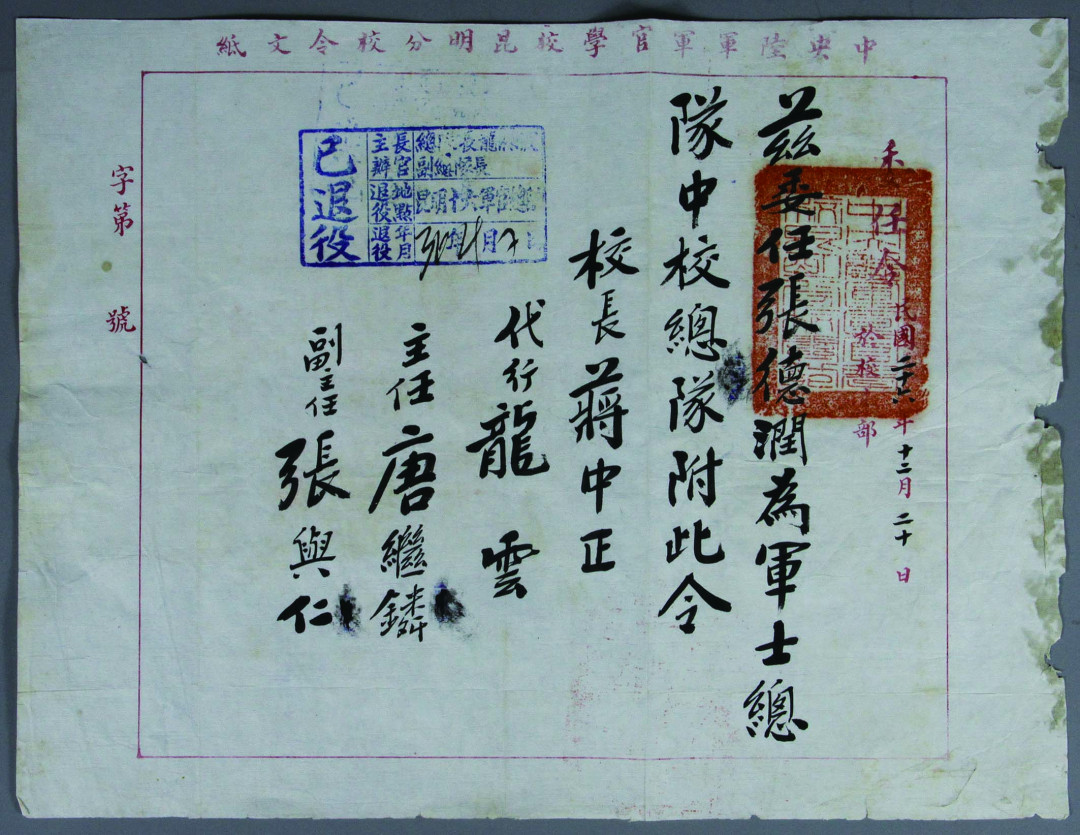 中央陸軍軍官學校昆明分校令文紙
任令
民國二十六年十二月二十日
於校部
茲委任張德潤為軍士總
隊中校總隊附此令
校長蔣中正
代行龍雲
主任唐繼鏻
副主任張與仁
已退役
主辦長官
總隊長龍
副總隊長
退役地點
昆明十六軍官總
退役年月
年月
字第號